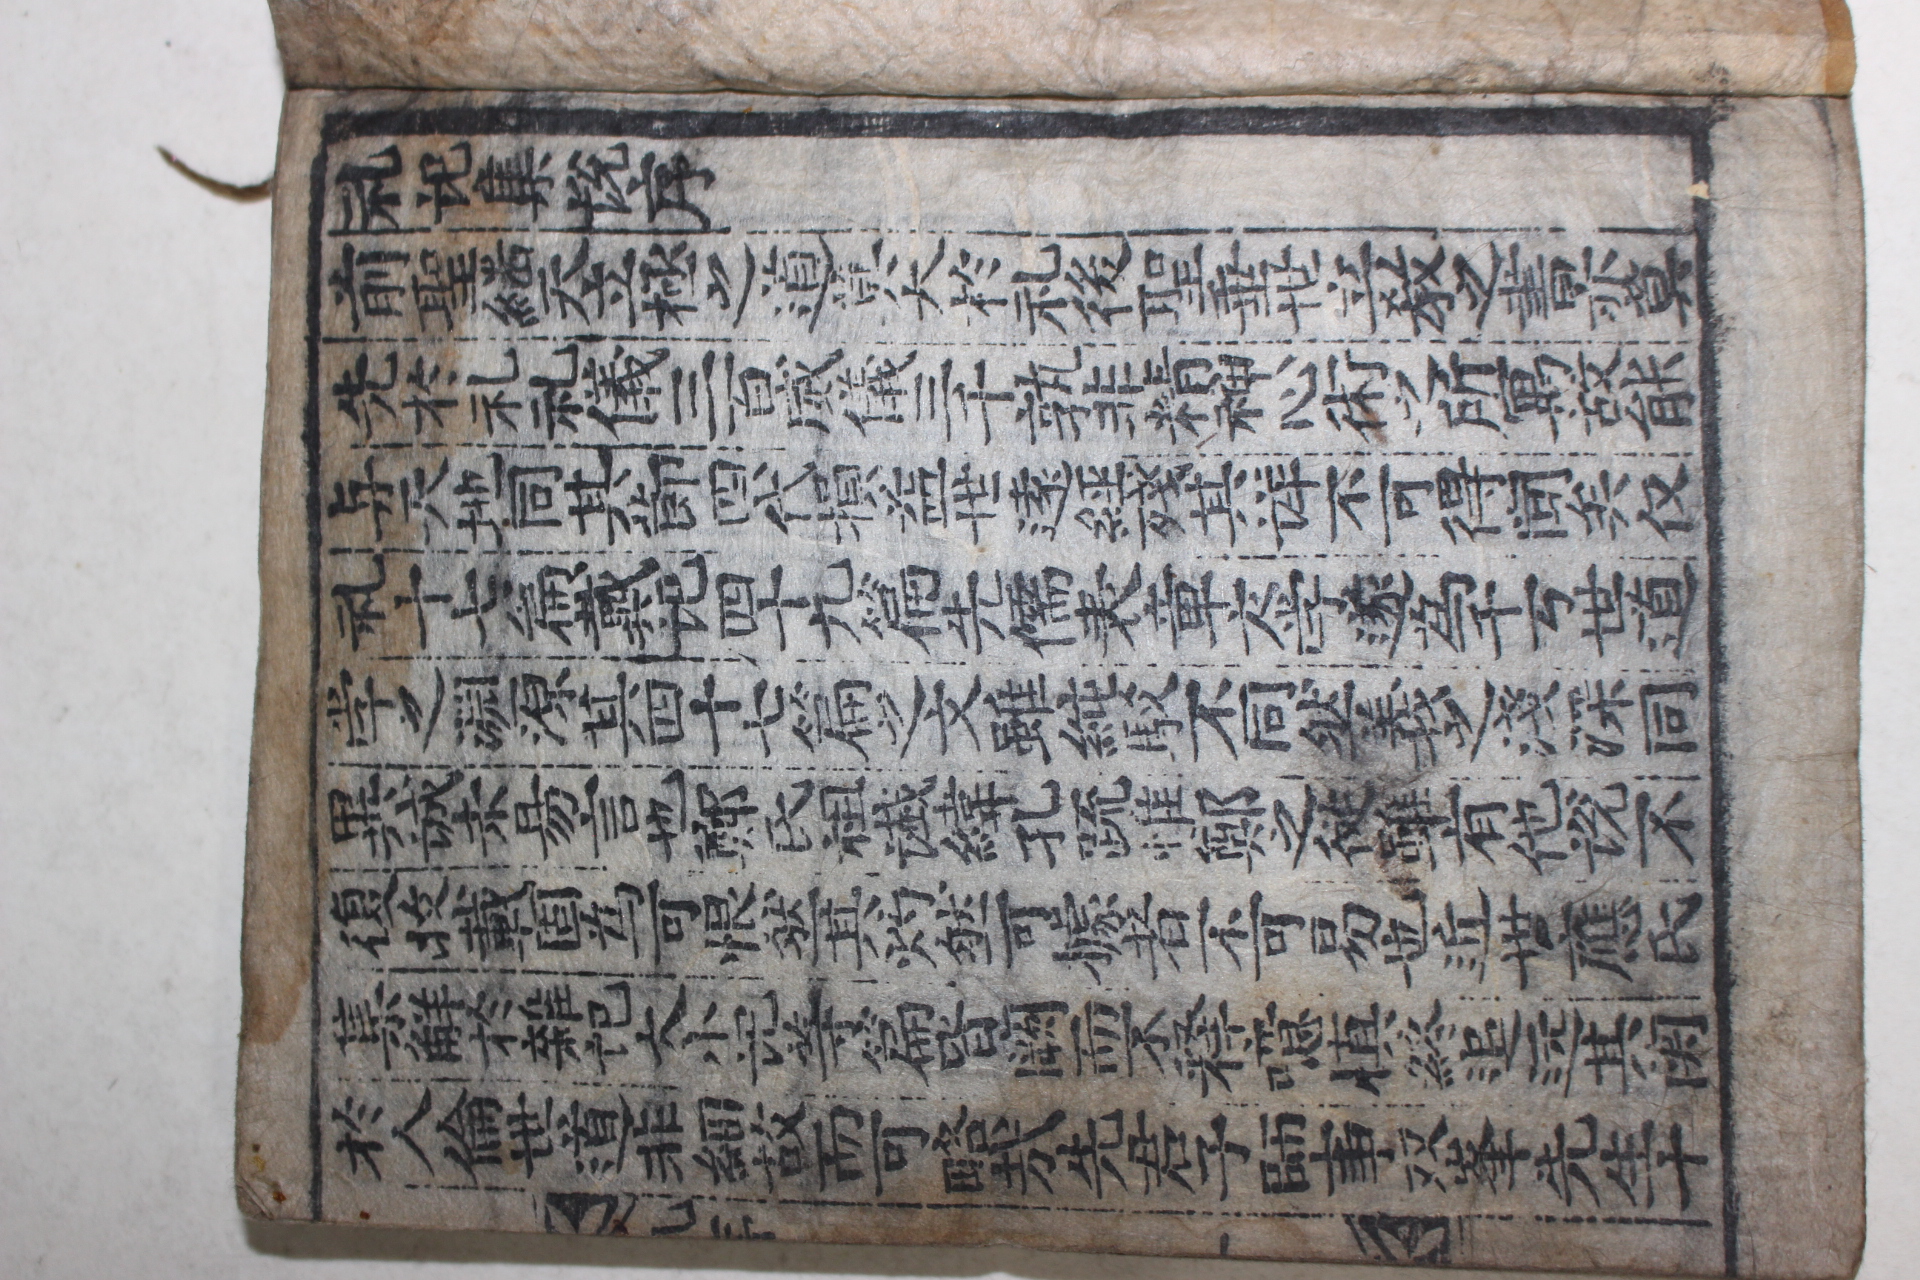 礼記集說序
前聖繼天立極之道莫大於礼後聖垂世立教之書亦莫
先於礼礼儀三百威儀三千孰非精神心術之所寓故能
與天地同其節四代損益世遠經殘其詳不可得聞矣仅
礼十七篇戴記四十九篇先儒表章庸學遂爲千万世道
学之淵源其四十七篇之文雖純駁不同然義之淺深同
異誠未易言也鄭氏祖讖緯孔疏惟鄭之從雖有他說不
復收載固爲可恨然其灼然可據者不可易也近世應氏
集解於雜記大小記等篇皆闕而不釋噫愼終追遠其関
於人倫世道非細故而可略哉先君子師事双峯先生十